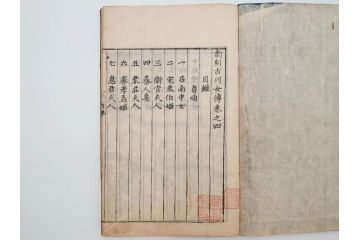 新刻古列女傳卷之四
目錄
貞順
一 召南申女
二 宋恭伯姬
三 衛宣夫人
四 蔡人妻
五 黎莊夫人
六 齊孝孟姬
七 息君夫人